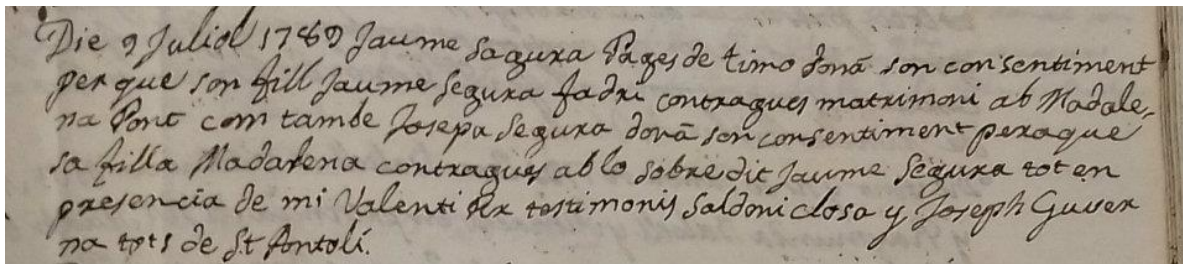 Die 9 Juliol 1789 Jaume Sagura Pages de timo donà son consentiment
perque son fill Jaume Segura fadri contragues matrimoni ab Madale,
na Pont com tambe Josepa Segura donà son consentiment peraque
sa filla Madalena contragues ab lo sobredit Jaume Segura tot en
presencia de mi Valenti testimonis Saldoni closa y Joseph Guver
na tots de St Antolí.